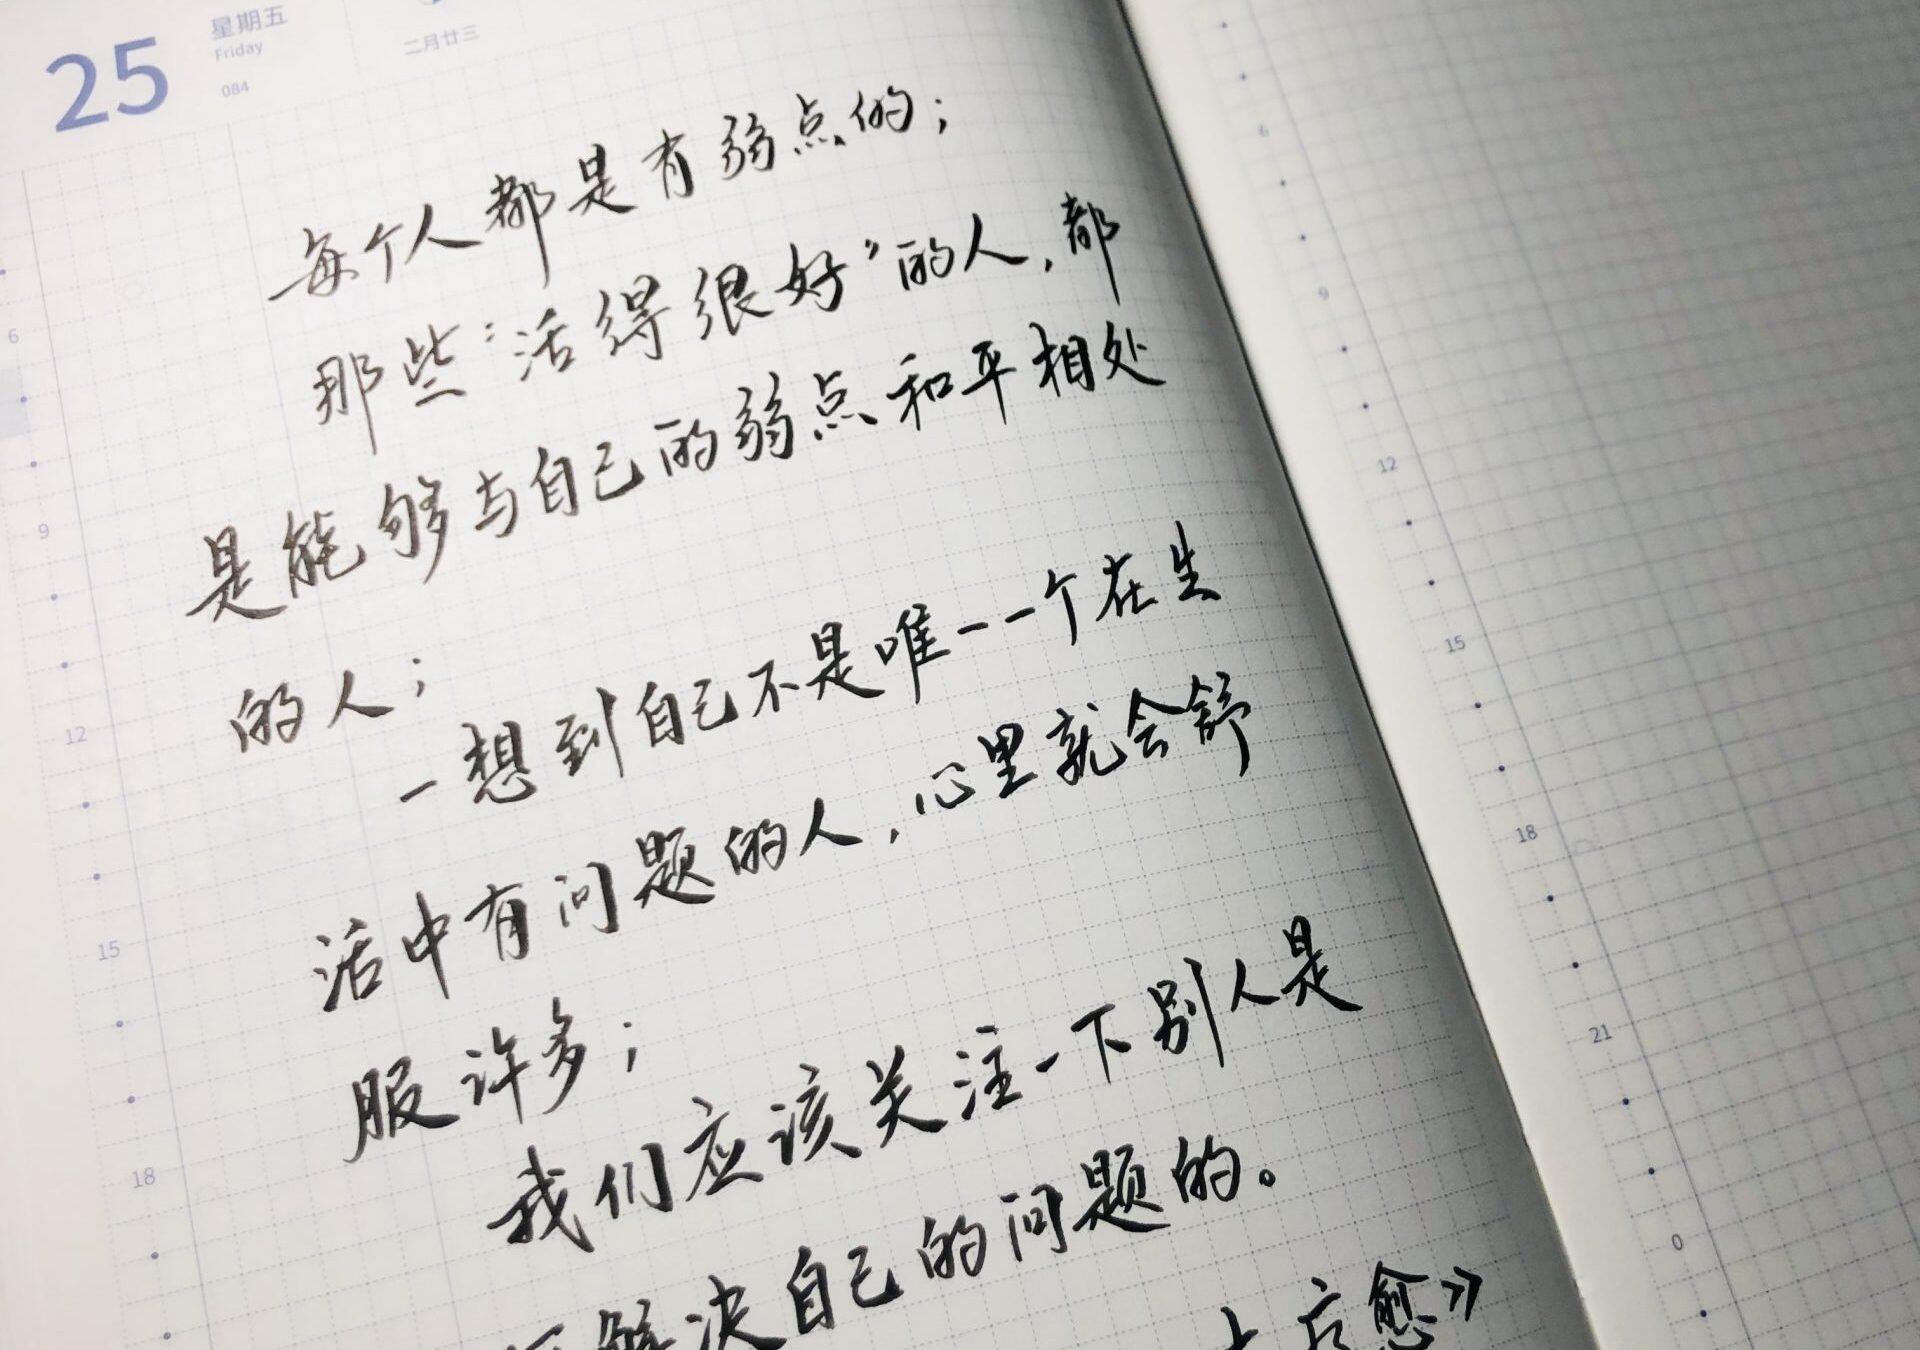 25
星期五
Friday
084
二月廿三
每个人都是有弱点的；
那些“活得很好”的人，都
是能够与自己的弱点和平相处
的人；
一想到自己不是唯一一个在生
活中有问题的人，心里就会舒
服许多；
我们应该关注一下别人是
解决自己的问题的。
愈》
6
9
12
15
18
6
9
12
15
18
21
0